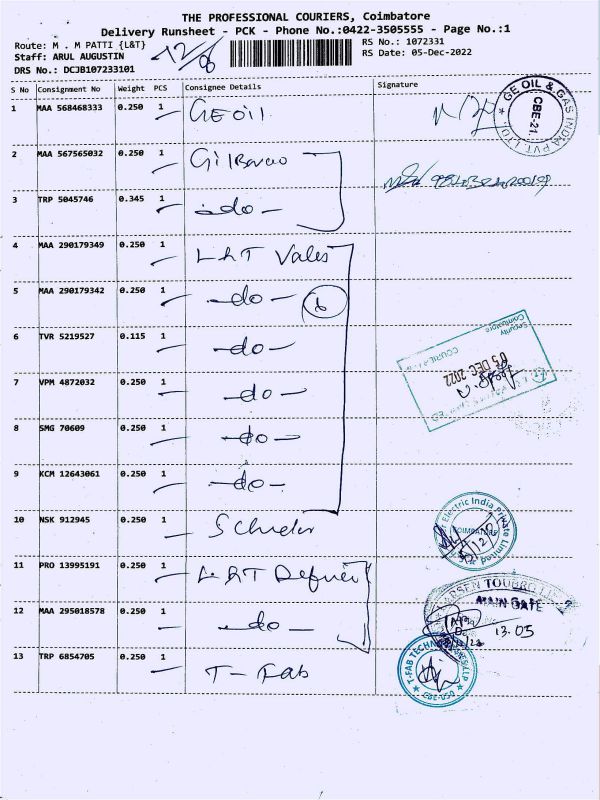 THE PROFESSIONAL COURIERS, Coimbatore
Delivery Runsheet - PCK - Phone No.:0422-3505555 - Page No.:1
Route: M . M PATTI {L&T} RS No.: 1072331
Staff: ARUL AUGUSTIN 12/8 RS Date: 05-Dec-2022
DRS No.: DCJB107233101
S No Consignment No Weight PCS Consignee Details Signature
1 MAA 568468333 0.250 1 GE oil GE OIL & GAS INDIA PVT. LTD. CBE-21.
2 MAA 567565032 0.250 1
3 TRP 5045746 0.345 1 -do-
4 MAA 290179349 0.250 1 L&T Vales
5 MAA 290179342 0.250 1 -do- 6
6 TVR 5219527 0.115 1 -do-
Security
Coimbatore
COURIER
05 DEC 2022
7 VPM 4872032 0.250 1 -do-
8 SMG 70609 0.250 1 -do-
9 KCM 12643061 0.250 1 -do-
10 NSK 912945 0.250 1 Electric India Private Limited COIMBATORE
11 PRO 13995191 0.250 1 L&T
12 MAA 295018578 0.250 1 -do- MAIN GATE 13.05
13 TRP 6854705 0.250 1 T-Fab T-FAB LLP